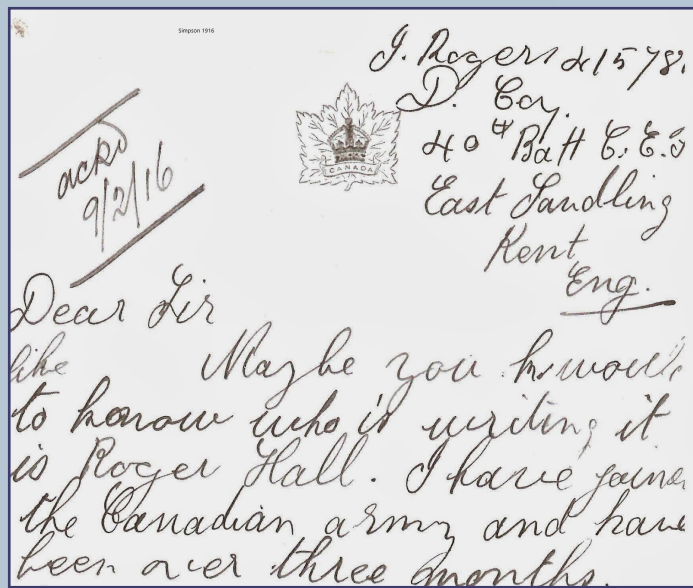 Simpson 1916
J. Rogers 41578
D. Coy.
40th Batt C.E.F
East Sandling
Kent
Eng.
CANADA
ackd
9/2/16
Dear Sir
like Maybe you would
to konow who is writing it
is Roger Hall. I have joine
the Canadian army and have
been over three months.